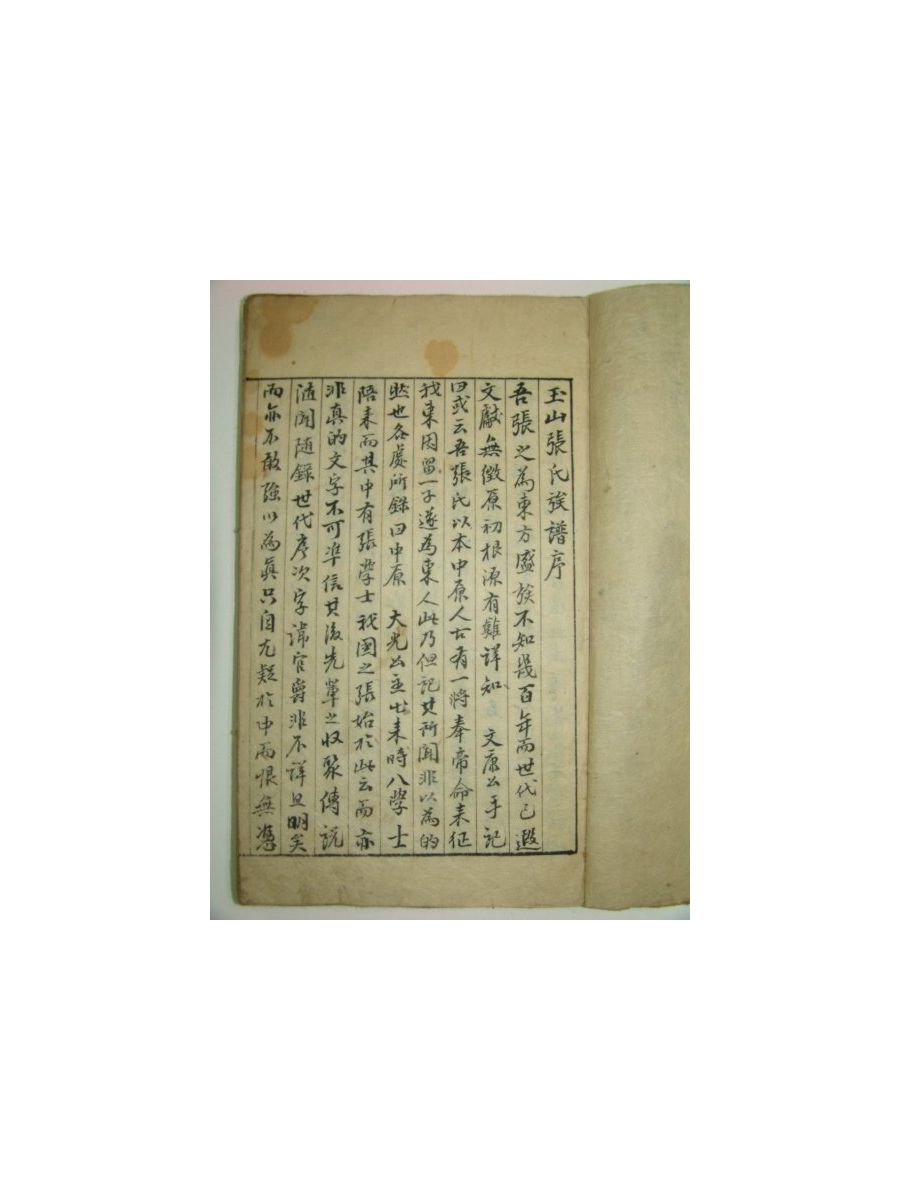 玉山張氏族譜序
吾張之為東方盛族不知幾百年而世代已遐
文獻無徵原初根源有難詳知 文康公手記
曰或云吾張氏以本中原人古有一將奉帝命来征
我東因留一子遂為東人此乃但記其所聞非以為的
然也各處所錄曰中原 大光公主出来時八學士
陪来而其中有張學士我國之張始於此云而亦
非真的文字不可准信其後先輩之収聚傳説
随聞随録世代序次字諱官爵非不詳且明矣
而亦不敢強以為真只自尤疑於中而恨無憑